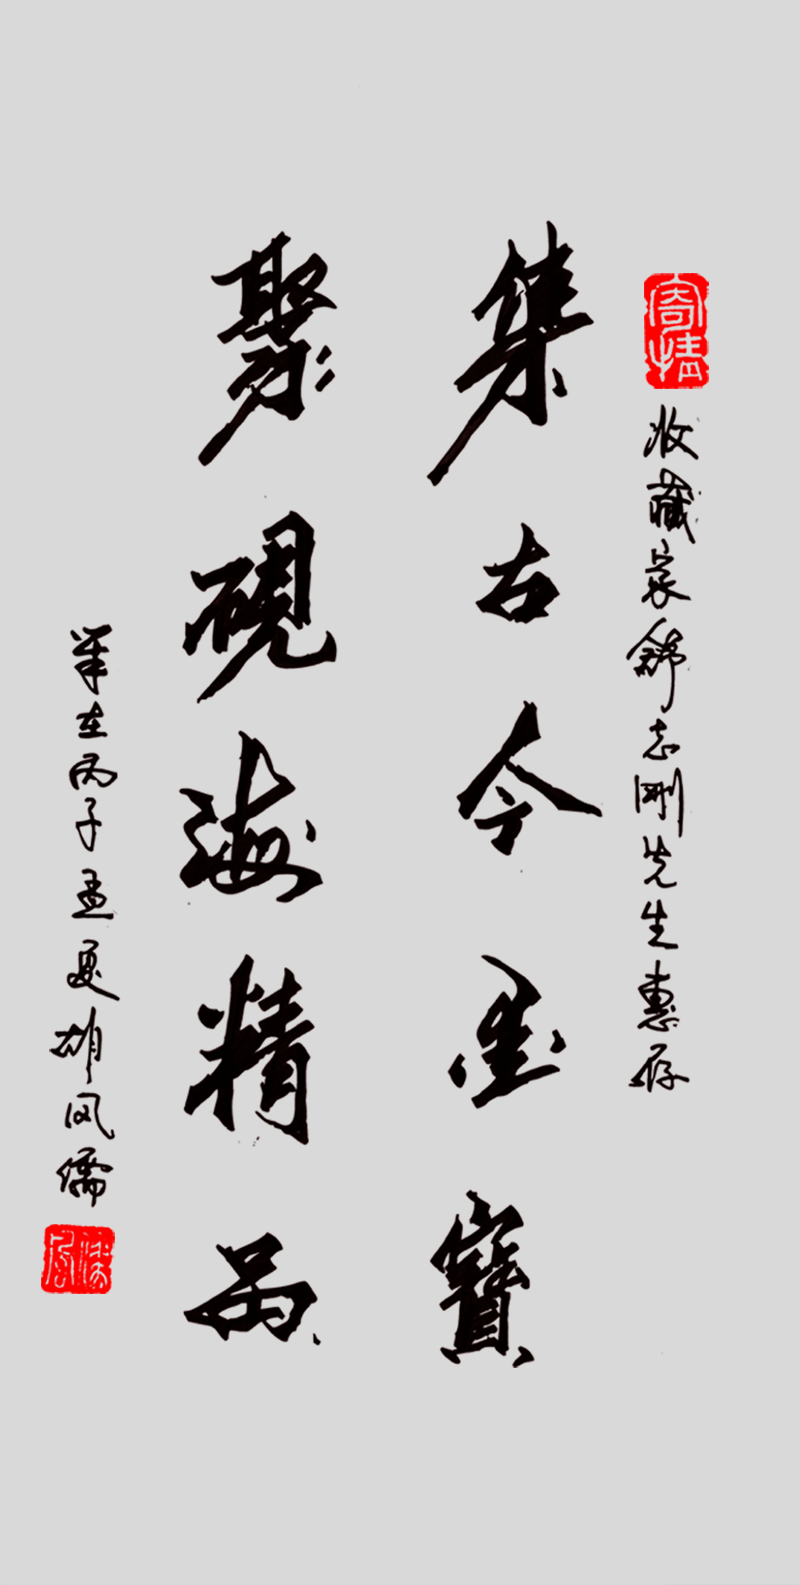 寄情
收藏家舒志剛先生惠存
集古今墨寶
聚硯海精品
歲在丙子孟夏雄风儒